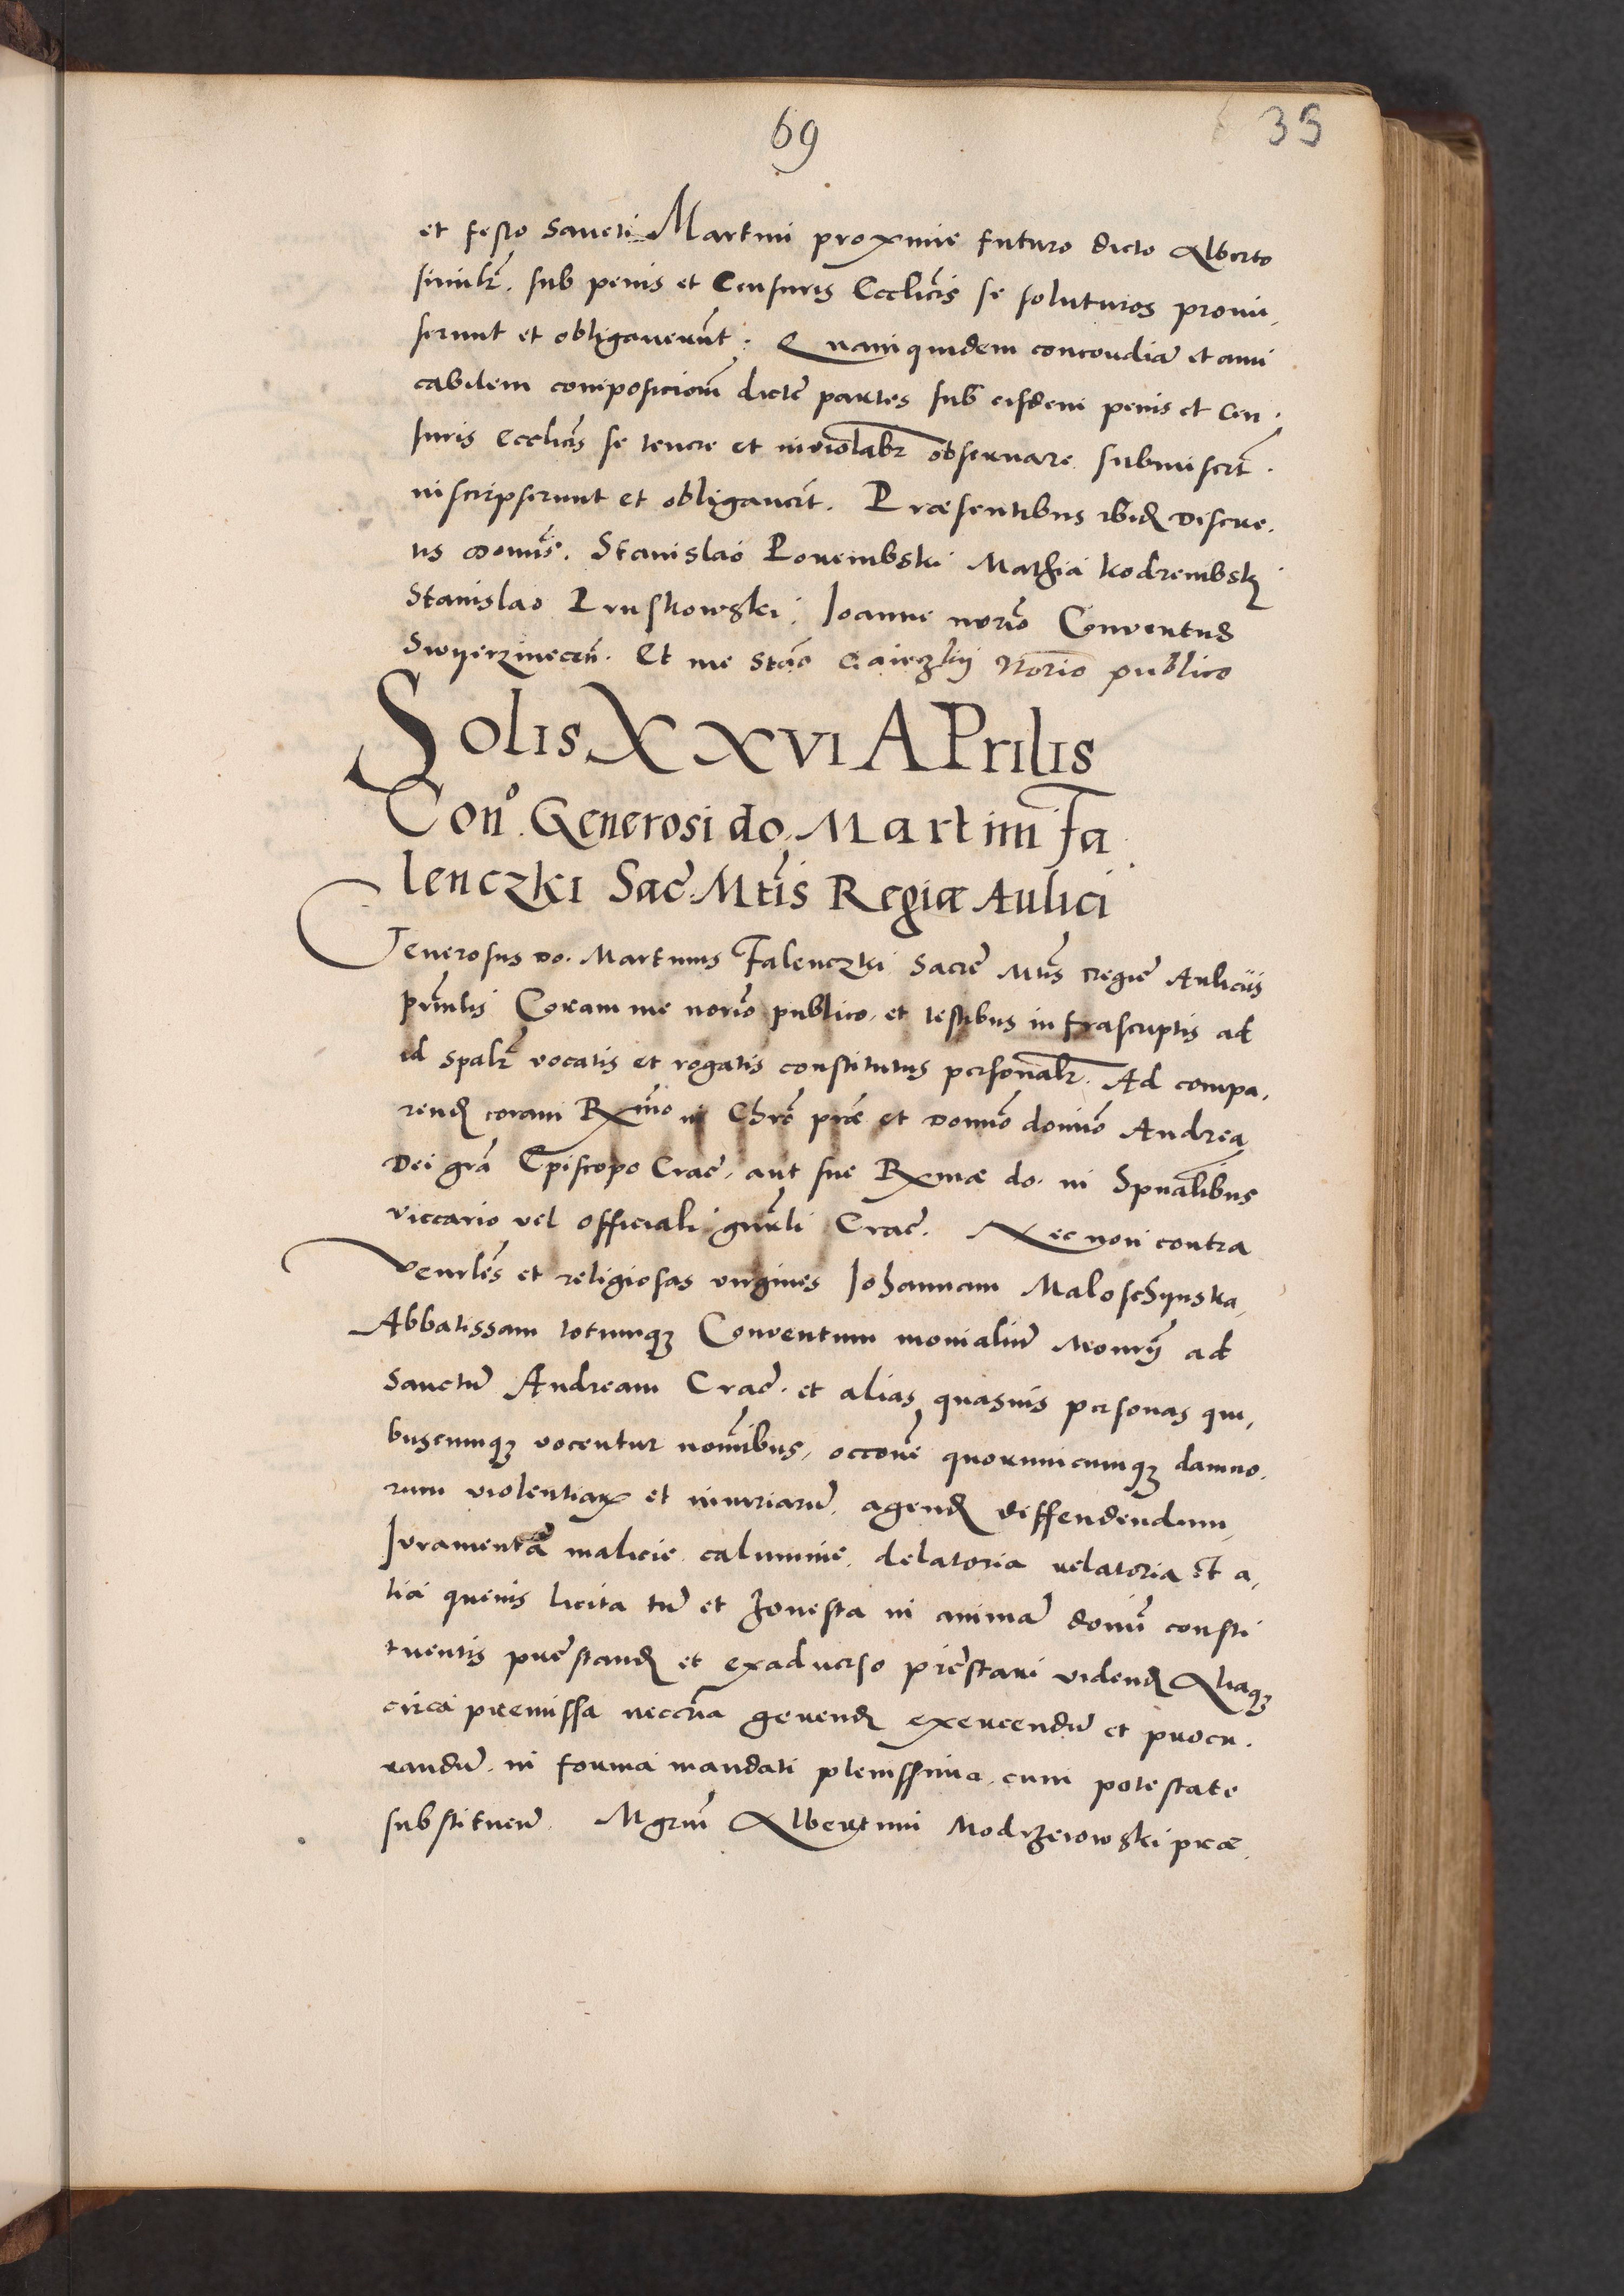 69
39
et festo Sancti Martini proxime futuro dicto Alberto
similr̃. sub penis et Censuris Ecclic̃is se soluturos promi,
serunt et obligaverũt: Quamquidem concordiã et ami
cabilem composicionẽ dictẽ partes sub eisdem penis et Cen,
suris Ecclic̃is se tenere et inviolabr̃ observare submiserũt.
inscripserunt et obligaverũt. Præsentibus ibid̃ Discre,
tis Dominis. Stanislao Porembski Mathia kodrembski
Stanislao Pruskowski. Joanne nor̃io Conventus
Swyerzinecen̄. Et me Stão Gaieczkij Norio publico
Solis XXVI APrilis
Con⁰. Generosi do. Martini Fa
lenczki Sac̃. Mtĩs Regiæ Aulici
Generosus Do. Martinus Falenczki Sacrẽ Mtĩs regiẽ Aulicus
pr̃intis Coram me norĩo publico, et testibus infrascriptis ad
id spalr̃ vocatis et rogatis constitutus personalr̃. Ad compa,
rend̃ coram Rx̃mo in Chrõ prẽ et Domĩno domĩno Andrea
Dei grã Episcopo Crac̃. aut sue Rxmæ do. in Spũalibus
viccario vel officiali gñrli Crac̃. Nec non contra
Venrlẽs et religiosas virgines Johannam Maloschynska,
Abbatissam totumqȝ Conventum monialiũ Monrij̃ ad
Sanctũ Andream Crac̃. et alias quasvis personas qui,
buscumqȝ vocentur nomĩbus, occonẽ quorumcumqȝ damno,
rum violentiaꝝ et iniuriarũ. agend̃ deffendendum,
Juramentã malicie, calumniẽ. delatoria relatoria et a,
lia quevis licita tñ et honesta in animã domĩ consti
tuentis prẽstand̃ et exadverso prẽstari vidend̃ Aliaqȝ
circa premissa neccr̃ia gerend̃ exercendũ et procu,
randũ. in forma mandati plenissima. cum potestate
substituen̄. Mgrm̃ Albertum Modrzerowski præ,